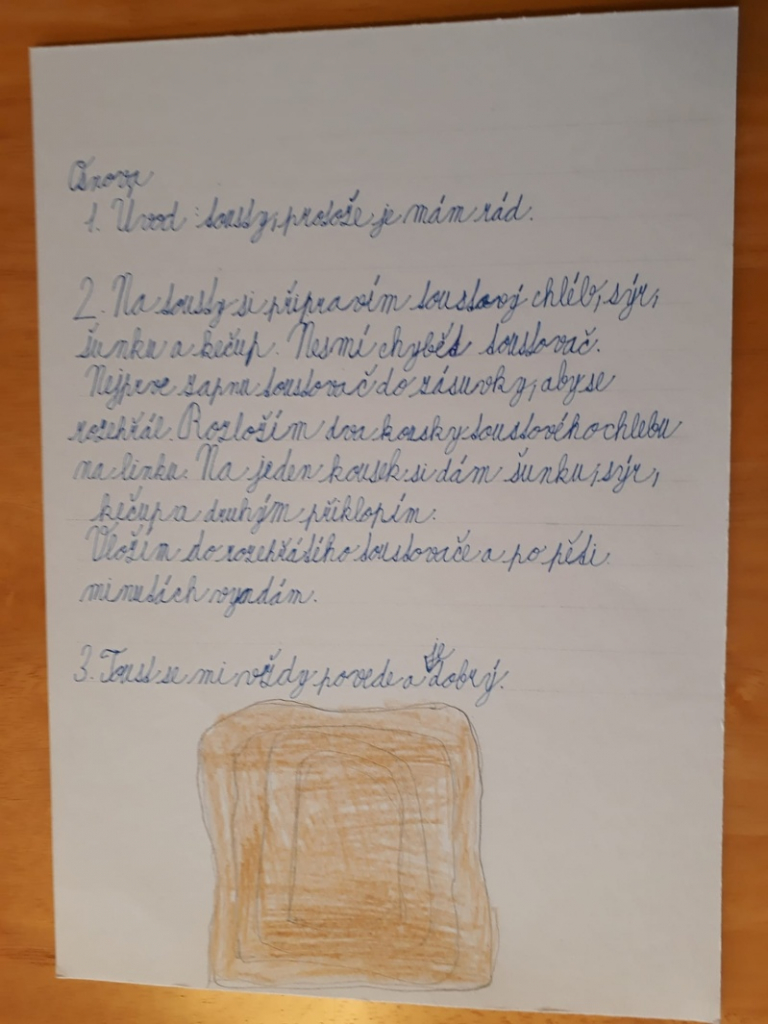 Osnova
1. Úvod: tousty, protože je mám rád.
2. Na tousty si připravím toustový chléb, sýr,
šunku a kečup. Nesmí chybět toustovač.
Nejprve zapnu toustovač do zásuvky, aby se
rozehřál. Rozložím dva kousky toustového chlebu
na linku. Na jeden kousek si dám šunku, sýr,
kečup a druhým přiklopím.
Vložím do rozehřátího toustovače a po pěti
minutách vyndám.
3. Toust se mi vždy povede a je dobrý.